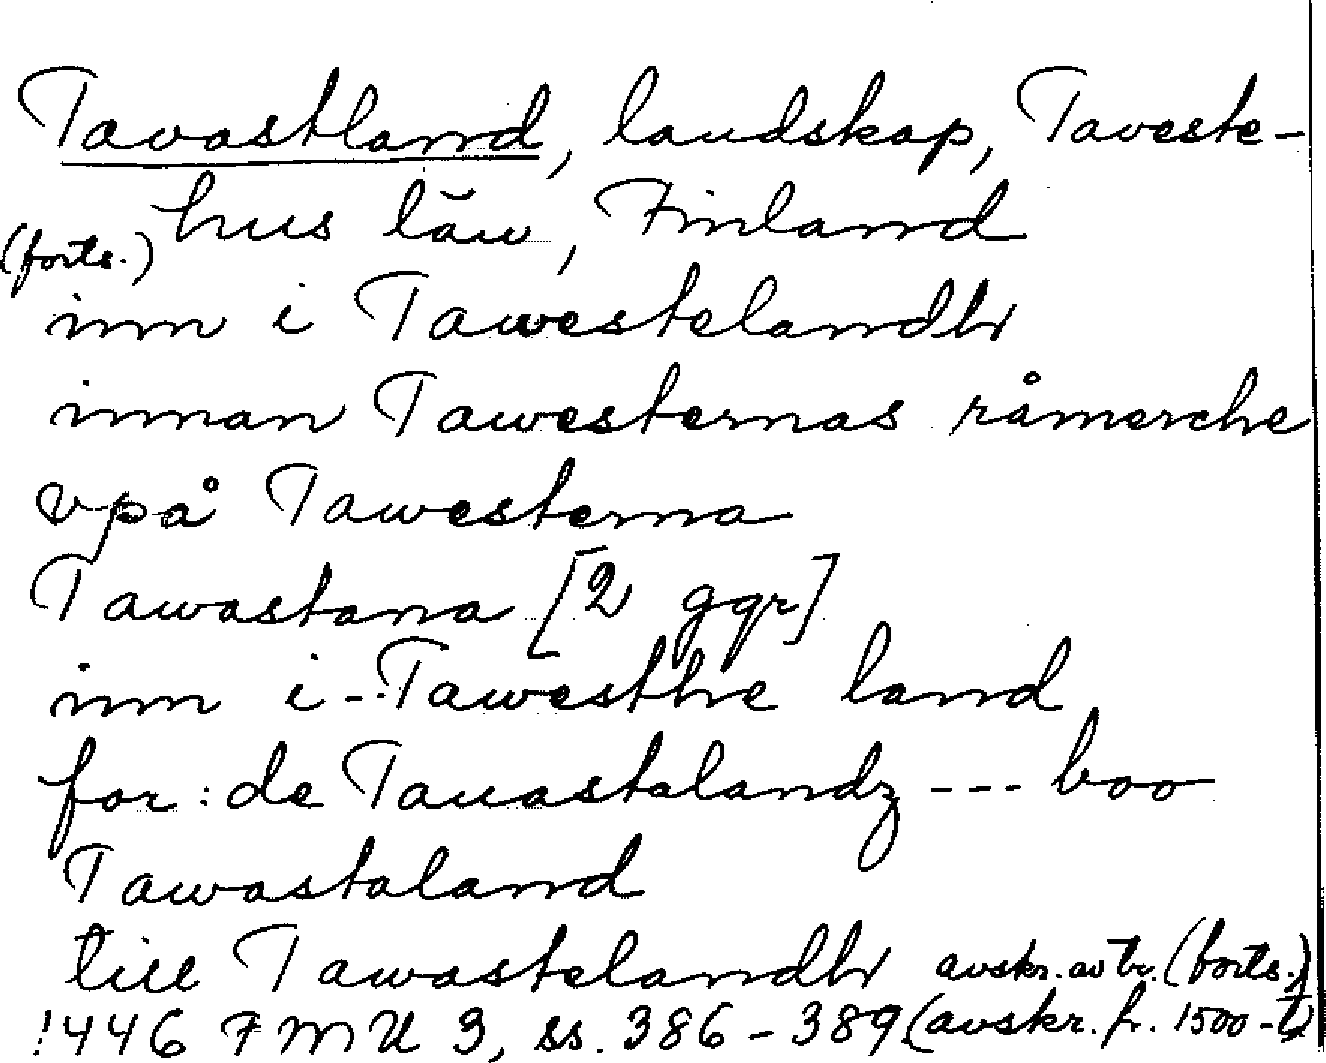 Tavastland, landskap, Taveste-
hus län, Finland
(forts.)
inn i Tawestelandh
innan Tawesternas råmerche
vpå Tawesterna
Tawastana [2 ggr]
inn i - Tawesthe land
for: de Tauastalandz --- boo
Tawastaland
till Tawastelandh avskr. av tr. (forts.)
1446 FMU 3, ss. 386-389 (avskr. fr. 1500-t)